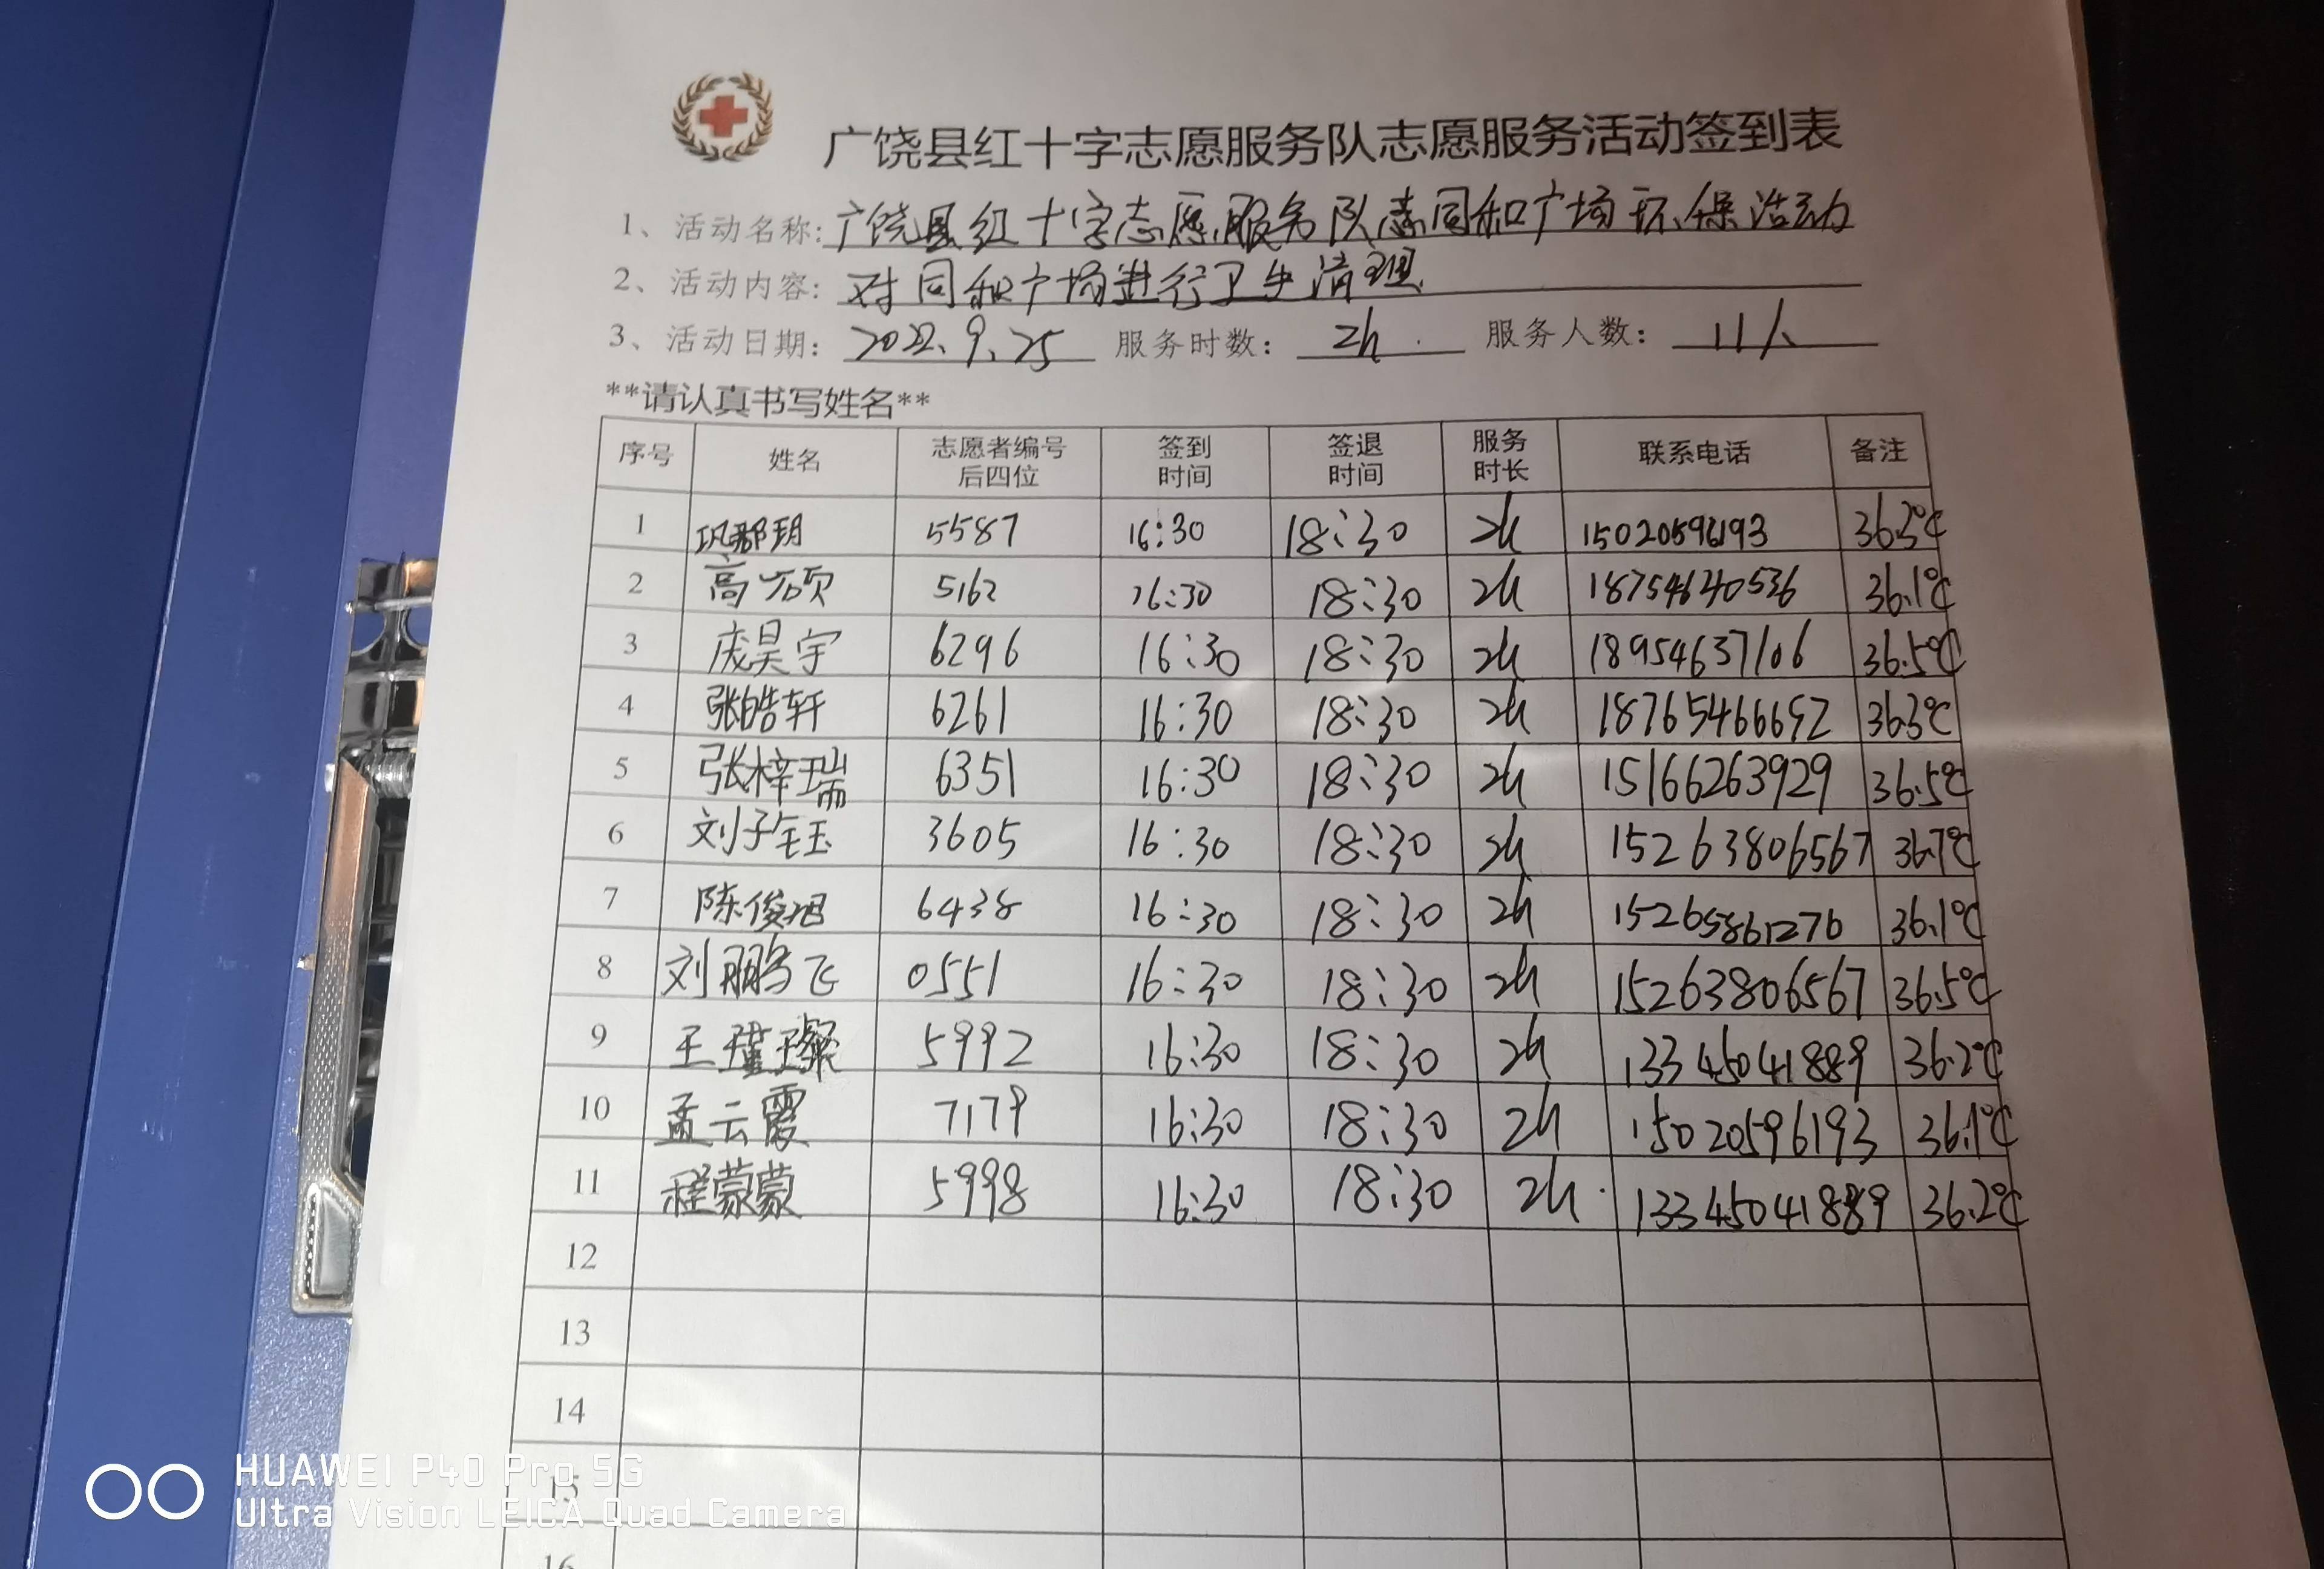 广饶县红十字志愿服务队志愿服务活动签到表
1、活动名称: 广饶县红十字志愿服务队赴同和广场环保活动
2、活动内容: 对同和广场进行卫生清理
3、活动日期: 2022.9.25 服务时数: 2h. 服务人数: 11人
**请认真书写姓名**
序号 姓名 志愿者编号后四位 签到时间 签退时间 服务时长 联系电话 备注
1 5587 16:30 18:30 2h 15020596193 36.3℃
2 高硕 5162 16:30 18:30 2h 18754640536 36.1℃
3 庞昊宇 6296 16:30 18:30 2h 18954637106 36.5℃
4 张皓轩 6261 16:30 18:30 2h 18765466692 36.3℃
5 张梓瑞 6351 16:30 18:30 2h 15166263929 36.5℃
6 刘子钰 3605 16:30 18:30 2h 15263806567 36.7℃
7 陈俊旭 6438 16:30 18:30 2h 15265861276 36.1℃
8 刘鹏飞 0551 16:30 18:30 2h 15263806567 36.5℃
9 王瑾璨 5992 16:30 18:30 2h 13345041889 36.2℃
10 孟云霞 7179 16:30 18:30 2h 15020596193 36.1℃
11 程蒙蒙 5998 16:30 18:30 2h. 13345041889 36.2℃
12
13
14
15
16
HUAWEI P40 Pro 5G
Ultra Vision LEICA Quad Camera